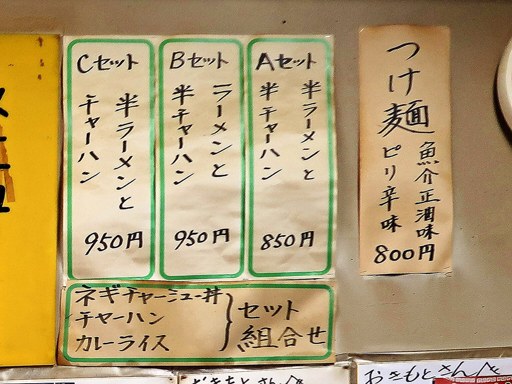 つけ麺
魚介正油味
ピリ辛味
800円
Aセット
半ラーメンと
半チャーハン
850円
Bセット
ラーメンと
半チャーハン
950円
Cセット
半ラーメンと
チャーハン
950円
ネギチャーシュー丼
チャーハン
カレーライス
セット
組合せ
おきもとさんへ
おきもとさんへ